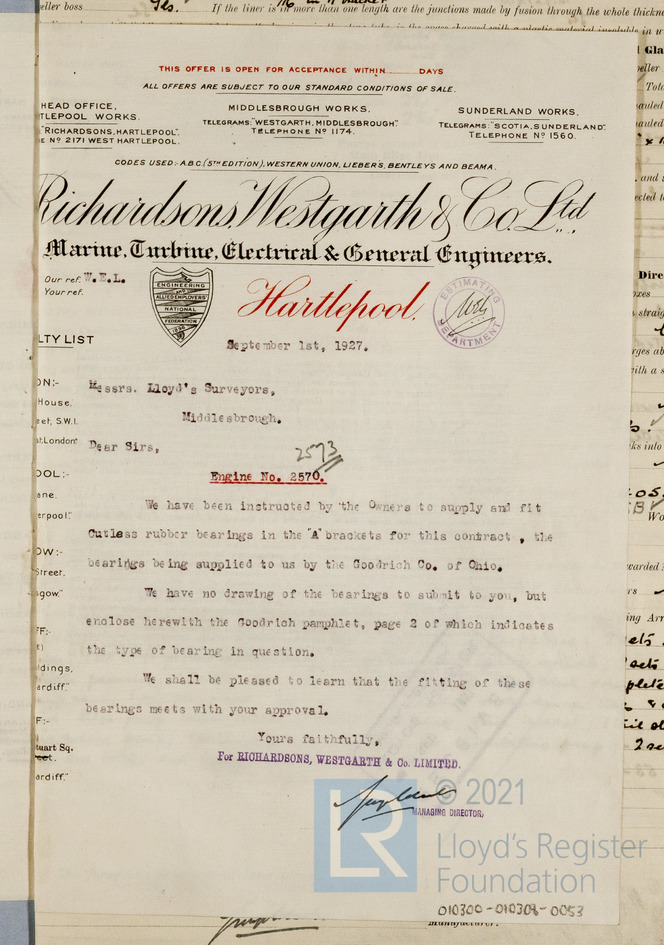 eller boss
Yes.
If the liner is in more than one length are the junctions made by fusion through the whole thickne
THIS OFFER IS OPEN FOR ACCEPTANCE WITHIN DAYS
ALL OFFERS ARE SUBJECT TO OUR STANDARD CONDITIONS OF SALE.
HEAD OFFICE,
TLEPOOL WORKS.
"RICHARDSONS, HARTLEPOOL".
E Nº 2171 WEST HARTLEPOOL.
MIDDLESBROUGH WORKS.
TELEGRAMS: "WESTGARTH, MIDDLESBROUGH."
TELEPHONE Nº 1174.
SUNDERLAND WORKS.
TELEGRAMS: "SCOTIA, SUNDERLAND".
TELEPHONE Nº 1560.
CODES USED:- A.B.C. (5TH EDITION), WESTERN UNION, LIEBER'S, BENTLEYS AND BEAMA.
Richardsons, Westgarth & Co. Ltd
Marine, Turbine, Electrical & General Engineers.
Our ref. W.E.L.
Your ref.
ENGINEERING
AND
ALLIED EMPLOYERS'
NATIONAL
FEDERATION
Hartlepool.
ESTIMATING
DEPARTMENT
LTY LIST
September 1st, 1927.
ON:-
House.
eet, S.W.1.
at, London"
OOL:-
ane.
erpool"
OW:-
Street.
sgow."
FF:-
ldings,
ardiff."
F:-
tuart Sq.
ardiff."
Messrs. Lloyd's Surveyors,
Middlesbrough.
Dear Sirs,
2573
Engine No. 2570.
We have been instructed by the Owners to supply and fit
Cutless rubber bearings in the "A" brackets for this contract, the
bearings being supplied to us by the Goodrich Co. of Ohio.
We have no drawing of the bearings to submit to you, but
enclose herewith the Goodrich pamphlet, page 2 of which indicates
the type of bearing in question.
We shall be pleased to learn that the fitting of these
bearings meets with your approval.
Yours faithfully,
For RICHARDSONS, WESTGARTH & Co. LIMITED.
MANAGING DIRECTOR.
LR
© 2021
Lloyd's Register
Foundation
010300-010308-0053